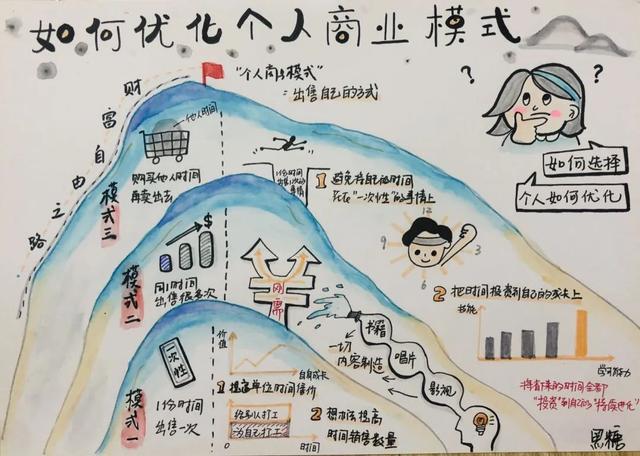 如何优化个人商业模式
财富自由之路
"个人商业模式"
=出售自己的方式
?
?
如何选择
个人如何优化
模式三
他人时间
购买他人时间
再卖出去
1份时间
1 避免将自己的时间
花在"一次性"的事情上
12
9
3
6
模式二
$
同1时间
出售很多次
刚需
2 把时间投资到自己的成长上
技能
学习能力
将省下来的时间全部
"投资"到自己的"持续进化"
书籍
一切
内容制造
唱片
影视
模式一
一次性
1份时间
出售一次
价值
自身成长
1 提高单位时间售价
给别人打工
为自己打工
0
时间
2 想办法提高
时间销售数量
黑糖